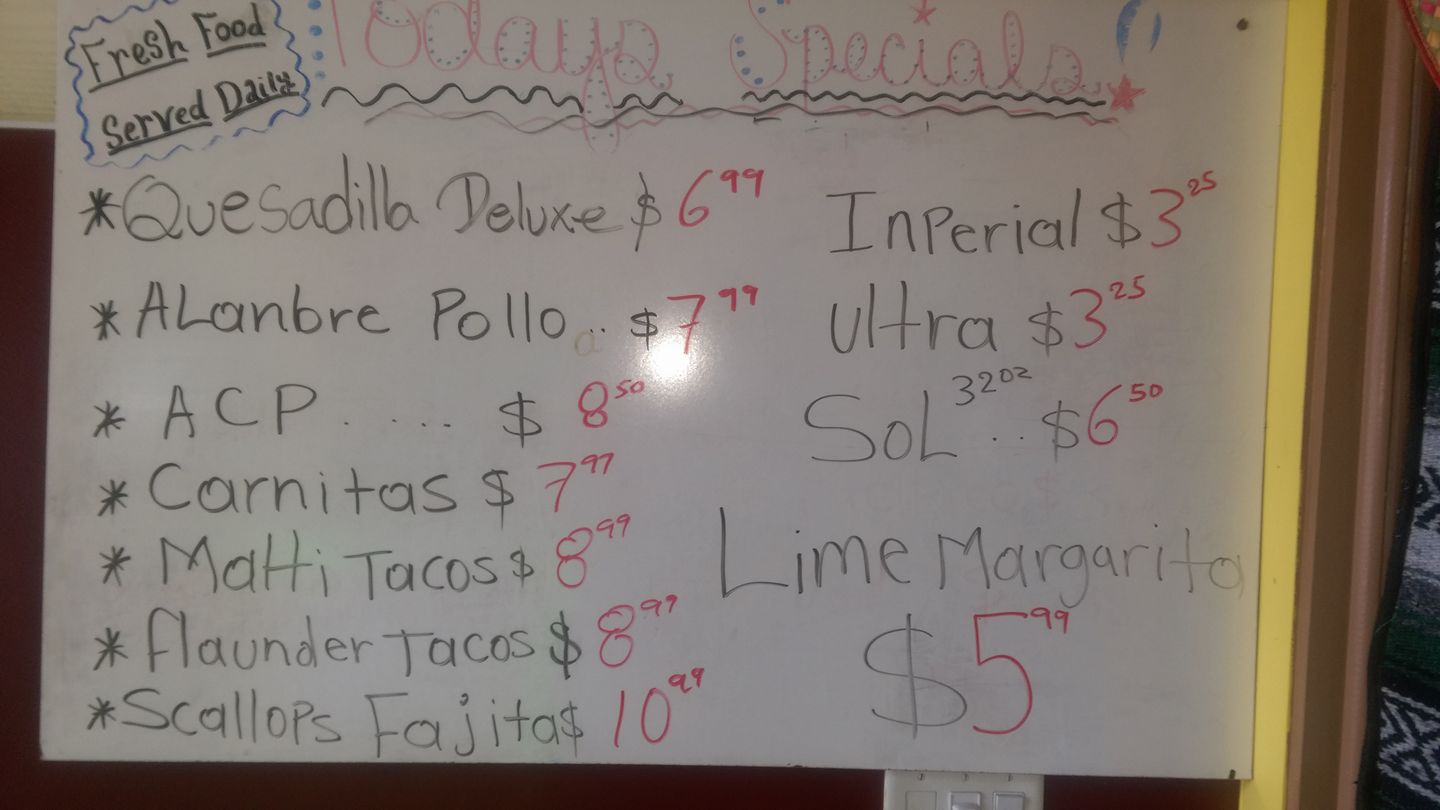 Fresh Food
Served Daily
Todays Specials!
*Quesadilla Deluxe $6.99
*ALanbre Pollo.. $7.99
* ACP..... $8.50
*Carnitas $7.99
* Mahi Tacos $8.99
* flaunder Tacos $8.99
*Scallops Fajita$ 10.99
InPerial $3.25
Ultra $3.25
SoL 32oz .. $6.50
Lime Margarita
$5.99